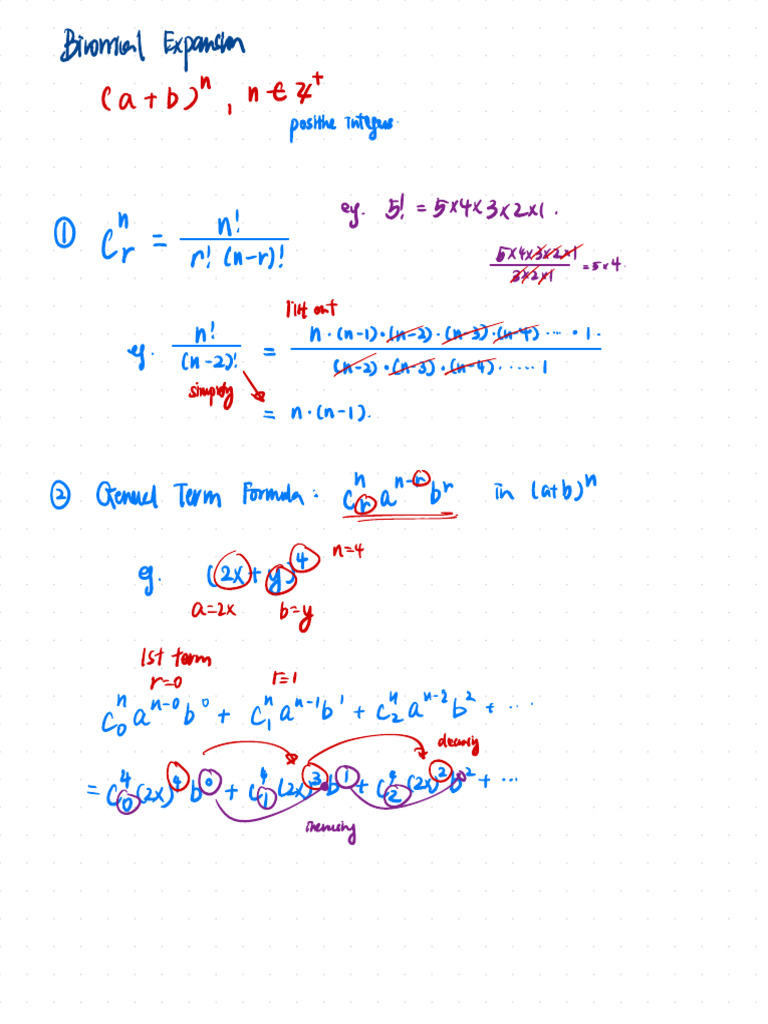 Binomial Expansion
(a+b)^n , n ∈ Z^+
positive integers
① C^n_r = n! / r! (n-r)!
eg. 5! = 5×4×3×2×1.
5×4×3×2×1 / 3×2×1 = 5×4.
list out
eg. n! / (n-2)! = n·(n-1)·(n-2)·(n-3)·(n-4)·····1· / (n-2)·(n-3)·(n-4)·····1
simplify
= n·(n-1).
② General Term Formula: C^n_r a^{n-r} b^r in (a+b)^n
eg. (2x+y)^4 n=4
a=2x b=y
1st term
r=0 r=1
C^n_0 a^{n-0} b^0 + C^n_1 a^{n-1} b^1 + C^n_2 a^{n-2} b^2 + ...
= C^4_0 (2x)^4 b^0 + C^4_1 (2x)^3 · b^1 + C^4_2 (2x)^2 b^2 + ...